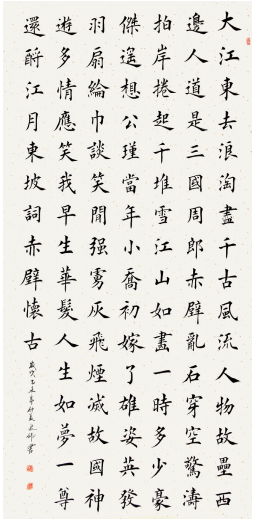 大江東去浪淘盡千古風流人物故壘西
邊人道是三國周郎赤壁亂石穿空驚濤
拍岸捲起千堆雪江山如畫一時多少豪
傑遙想公瑾當年小喬初嫁了雄姿英發
羽扇綸巾談笑間强虜灰飛煙滅故國神
遊多情應笑我早生華髮人生如夢一尊
還酹江月東坡詞赤壁懷古
歲次乙未年